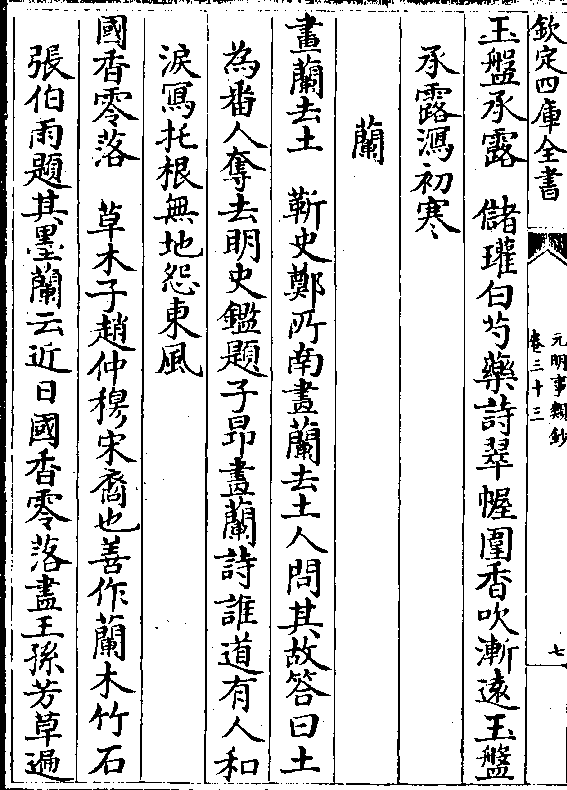 欽定四庫全書
元明事類鈔
卷三十三
七
玉盤承露　儲瓘白芍藥詩翠幄圍香吹漸遠玉盤
承露瀉初寒
蘭
畫蘭去土　靳史鄭所南畫蘭去土人問其故答曰土
為番人奪去明史鑑題子昂畫蘭詩誰道有人和
淚寫托根無地怨東風
國香零落　草木子趙仲穆宋裔也善作蘭木竹石
張伯雨題其墨蘭云近日國香零落盡王孫芳草遍